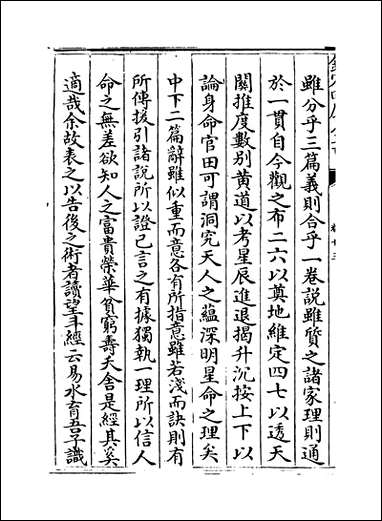 雖分乎三篇義則合乎一卷說雖質之諸家理則通
於一貫自今觀之布二六以奠地維定四七以透天
關推度數别黄道以考星辰進退揭升沉按上下以
論身命官田可謂洞究天人之蘊深明星命之理矣
中下二篇辭雖似重而意各有所指意雖若淺而訣則有
所傳援引諸說所以證已言之有據獨執一理所以信人
命之無差欲知人之富貴榮華貧窮壽夭舍是經其奚
適哉余故表之以告後之術者讀望斗經云易水育吾子識